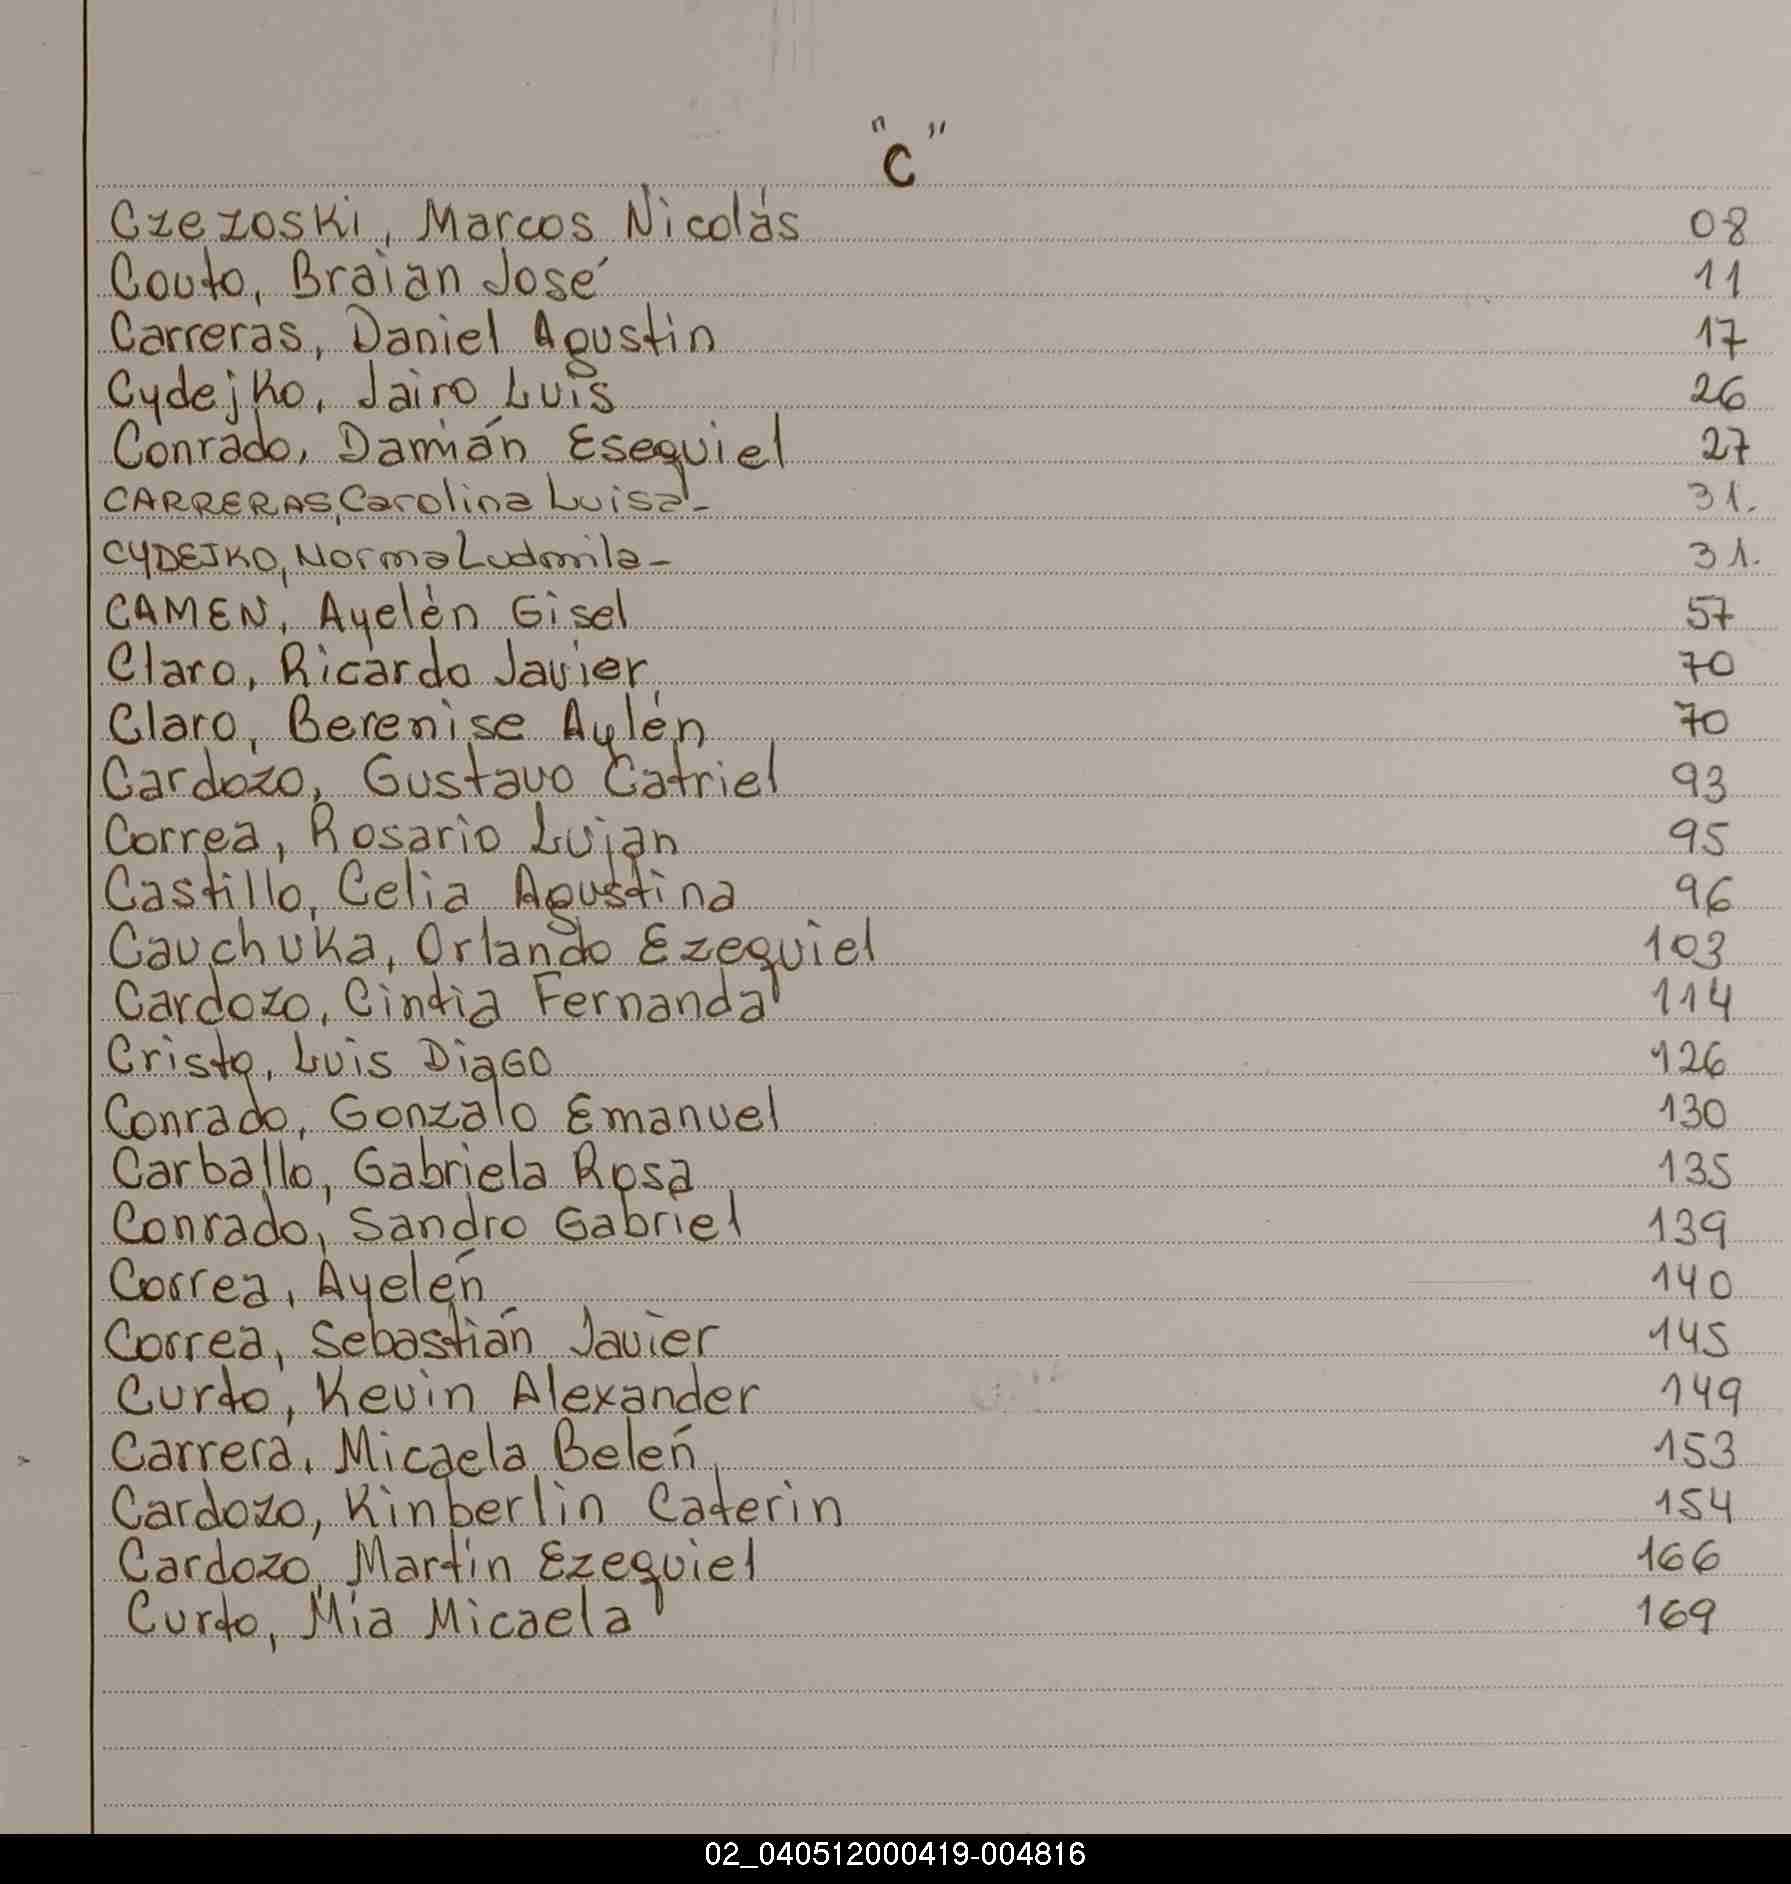 "C"
Czezoski, Marcos Nicolás 08
Couto, Braian José 11
Carreras, Daniel Agustin 17
Cydejko, Jairo Luis 26
Conrado, Damián Esequiel 27
CARRERAS, Carolina Luisa- 31.
CYDEJKO, Norma Ludmila- 31.
CAMEN, Ayelén Gisel 57
Claro, Ricardo Javier 70
Claro, Berenise Aylén 70
Cardozo, Gustavo Catriel 93
Correa, Rosario Lujan 95
Castillo, Celia Agustina 96
Cauchuka, Orlando Ezequiel 103
Cardozo, Cintia Fernanda 114
Cristo, Luis Diago 126
Conrado, Gonzalo Emanuel 130
Carballo, Gabriela Rosa 135
Conrado, Sandro Gabriel 139
Correa, Ayelén 140
Correa, Sebastián Javier 145
Curto, Kevin Alexander 149
Carrera, Micaela Belén 153
Cardozo, Kinberlin Caterin 154
Cardozo, Martin Ezequiel 166
Curto, Mia Micaela 169
02_040512000419-004816